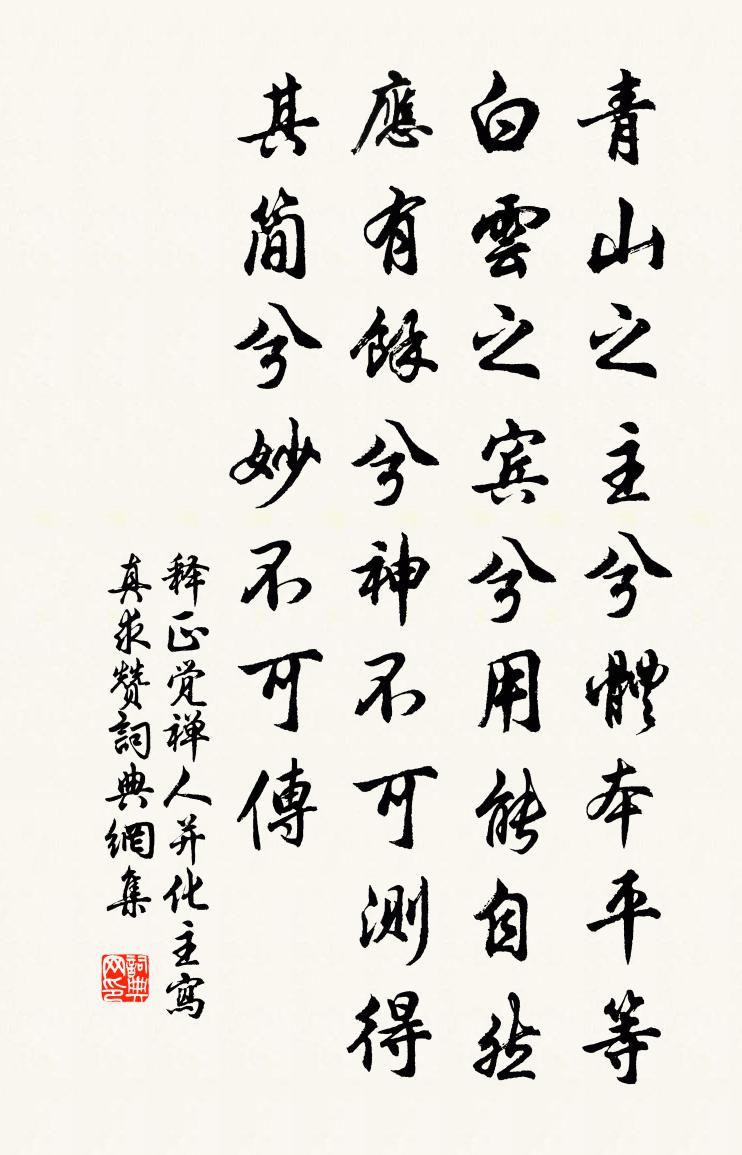 青山之主兮體本平等
白雲之宾兮用能自然
應有餘兮神不可測得
其简兮妙不可傳
释正觉禅人并化主寫
真求赞詞典網集
詞典网印